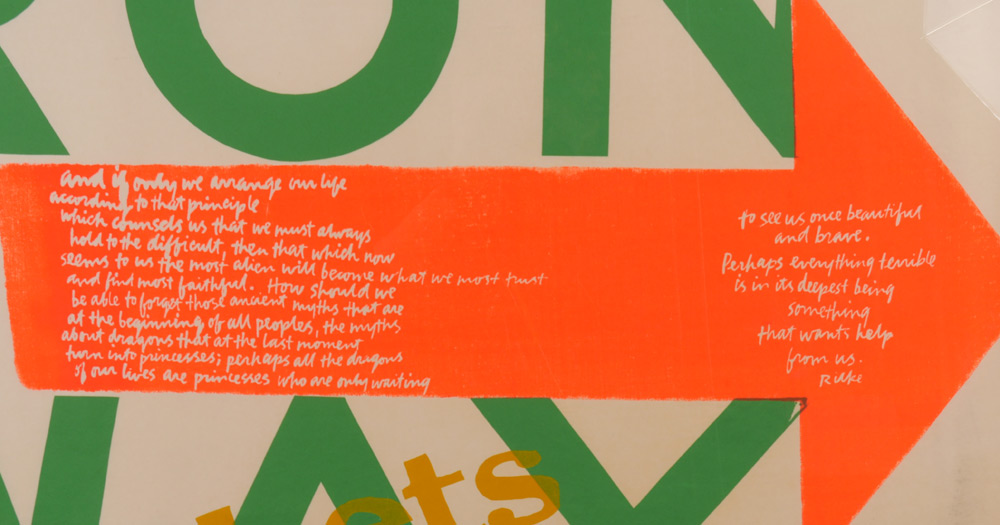 RON
and if only we arrange our life
according to that principle
which counsels us that we must always
hold to the difficult, then that which now
seems to us the most alien will become what we most trust
and find most faithful. How should we
be able to forget those ancient myths that are
at the beginning of all peoples, the myths
about dragons that at the last moment
turn into princesses; perhaps all the dragons
of our lives are princesses who are only waiting
to see us once beautiful
and brave.
Perhaps everything terrible
is in its deepest being
something
that wants help
from us.
Rilke
WAY
ets